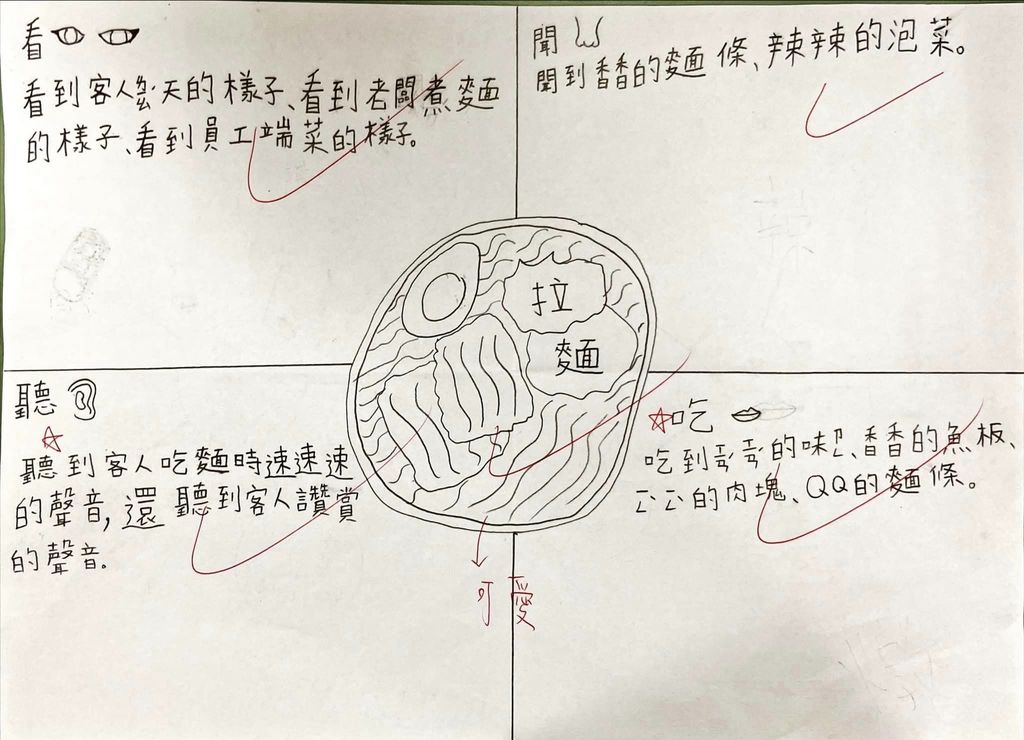 看
看到客人天的樣子、看到老闆煮麵
的樣子、看到員工端菜的樣子。
聞
聞到香香的麵條、辣辣的泡菜。
拉
麵
聽
聽到客人吃麵時速速速
的聲音,還聽到客人讚賞
的聲音。
吃
吃到的味、香香的魚板、
的肉塊、QQ的麵條。
可愛